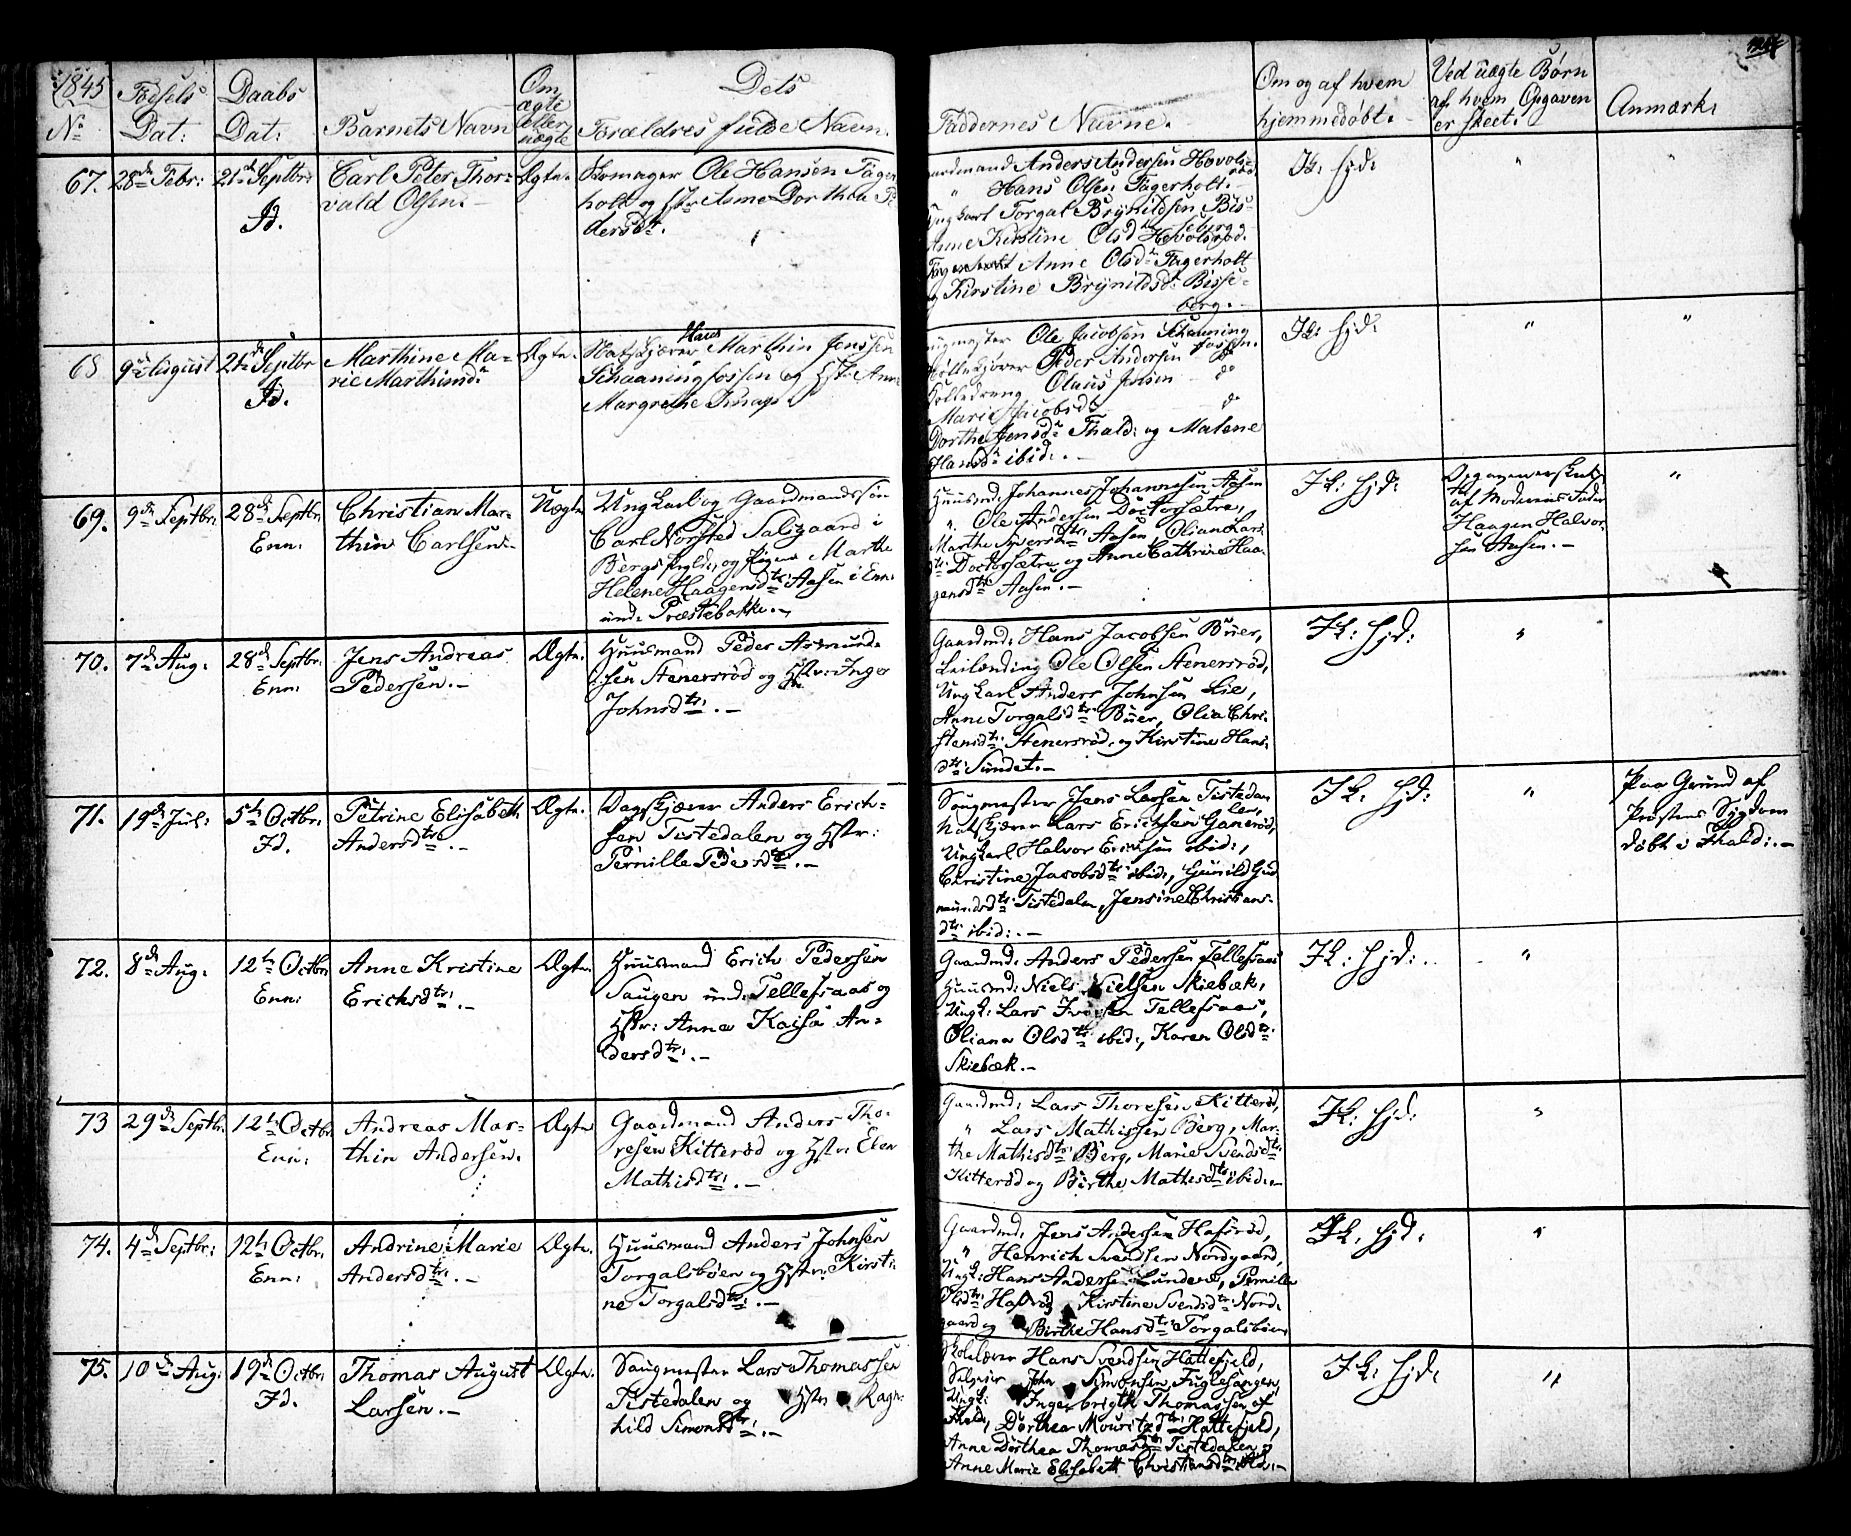 1845
No
Fødsels
Dat:
Daabs
Dat:
Barnets Navn
Om
ægte
eller
uægte
Dets
Forældres fulde Navn.
Faddernes Navne.
Om og af hvem
hjemmedøbt.
Ved uægte Børn
af hvem Opgaven
er skeet.
Anmærk:
67.
28de Febr:
21de Septbr:
Id.
Carl Peter Thor-
vald Olsen.
Ægte.
Ole Hansen Fager-
holt og Hstr Anne Dorthea Pe-
dersdtr.
Gaardmand Anders Andersen Hovols-
rød.
" Hans Olsen Fagerholt.
Ungkarl Torgal Brynildsen Bis-
seberg
Anne Kirstine Olsdtr Hovolsrød.
Anne Olsdtr Fagerholt
og Kirstine Brynildsd: Bisse-
berg.
Ik: hjd:
"
"
68
9de August
21de Septbr
Id.
Marthine Ma-
rie Marthinsdr
Ægte.
Natskjærer Hans Marthin Jensen
Schaaningfossen og Hstr Anne
Margrethe Knap
Ole Jacobsen Schanning
fossen.
Peder Andersen do
Olaus Jensen do
Marie Jacobsd: do
Dorthe Jensdr Fhald: og Malene
Hansdr ibid:.
Ik: hjd:
"
"
69.
9de Septbr:
28de Septbr
Enn:
Christian Mar-
thin Carlsen.
Uægte
Ungkarl og Gaardmandssøn
Carl Norsted Saligaard i
og Pigen Marthe
Helene Haagensdtr: Aasen i Enn:
und: Præstebakke.
Huusmd: Johannes Johannesen Aasen
". Ole Andersen Doctorsætre,
Marthe Syversdtr: Aasen Oliane Lars
dtr: Doctorsætre og Anne Cathrine Haa-
gensdtr: Aasen.
Ik: hjd:
af Moderens Fader
Haagen Halvor-
sen Aasen.
"
70.
7de Aug:
28de Septbr:
Enn:
Jens Andreas
Pedersen.
Ægte.
Huusmand Peder Asmund-
sen Stenersrød og Inger
Johnsdtr:.
Gaardmd: Hans Jacobsen Buer,
Leilending Ole Olsen Stenersrød,
Ungkarl Anders Johnsen Lie,
Anne Torgalsdtr: Buer, Olia Chri-
stensdtr: Stenersrød, og Kirstine Hans-
dtr: Sundet.
Ik: hjd:
"
71.
19de Jul:
5te Octbr:
Id.
Petrine Elisabeth
Andersdtr:.
Ægte.
Dagskjærer Anders Erich-
sen Tistedalen og Hstr:
Pernille Pedersdtr:.
Saugmester Jens Larsen Tisteda-
len,
Natskjærer Lars Erichsen Ganerød,
Ungkarl Halvor Erichsen ibid:,
Christine Jacobsdtr: ibid:, Gunild Gud
mundsdtr: Tistedalen, Jensine Christians-
dtr: ibid:.
Ik: hjd:
"
Paa Grund af
Præstens Sygdom
døbt i Fhald:.
72.
8de Aug:
12te Octbr
Enn:
Anne Kristine
Erichsdtr:.
Ægte.
Huusmand Erich Pedersen
Saugen und: Tellefsaas og
Hstr: Anne Kaisa An-
dersdtr:.
Gaardmd: Anders Pedersen Tellefsaas
Huusmd: Niels Nielsen Skiebæk,
Ungk: Lars Tellefsaas,
Oliana Olsdtr: ibid:, Karen Olsdtr:
Skiebæk.
Ik: hjd:
"
73
29de Septbr:
12te Octbr:
Enn:
Andreas Mar-
thin Andersen.
Ægte
Gaardmand Anders Tho-
resen Kitterød og Hstr: Elen
Mathisdtr:.
Gaardmd: Lars Thoresen Kitterød,
" Lars Mathissen Berg, Mar-
the Mathisdtr: Berg, Marie Svendsdtr:
Kitterød og Birthe Mathisdtr: ibid:.
Ik: hjd:
"
74.
4de Septbr:
12te Octbr:
Enn:
Andrine Marie
Andersdtr:.
Ægte.
Huusmand Anders Johnsen
Torgalsbøen og Hstr: Kirsti-
ne Torgalsdtr:.
Gaardmd: Jens Andersen Hafsrød,
" Henrich Svendsen Nordgaard,
Ungk: Hans Andersen Lundene, Pernille
Olsdtr: Hafsrød Kirstine Svendsdtr: Nord-
gaard og Birthe Hansdtr: Torgalsbøen
Ik: hjd:
"
75.
10de Aug:
19de Octbr:
Id.
Thomas August
Larsen.
Ægte.
Saugmester Lars Thomassen
Tistedalen og Hstr Ragn-
hild Simonsdtr:.
Skolelærer Hans Svendsen Hattefjeld,
John Simonsen Fuglesangen,
Ungk: Ingebrigth Thomassen af
Fhald, Dorthea Mouritzdtr: Hattefjeld,
Anne Dorthea Thomasdtr: Tistedalen og
Anne Marie Elisabeth Christiansdtr:
Ik: hjd:
"